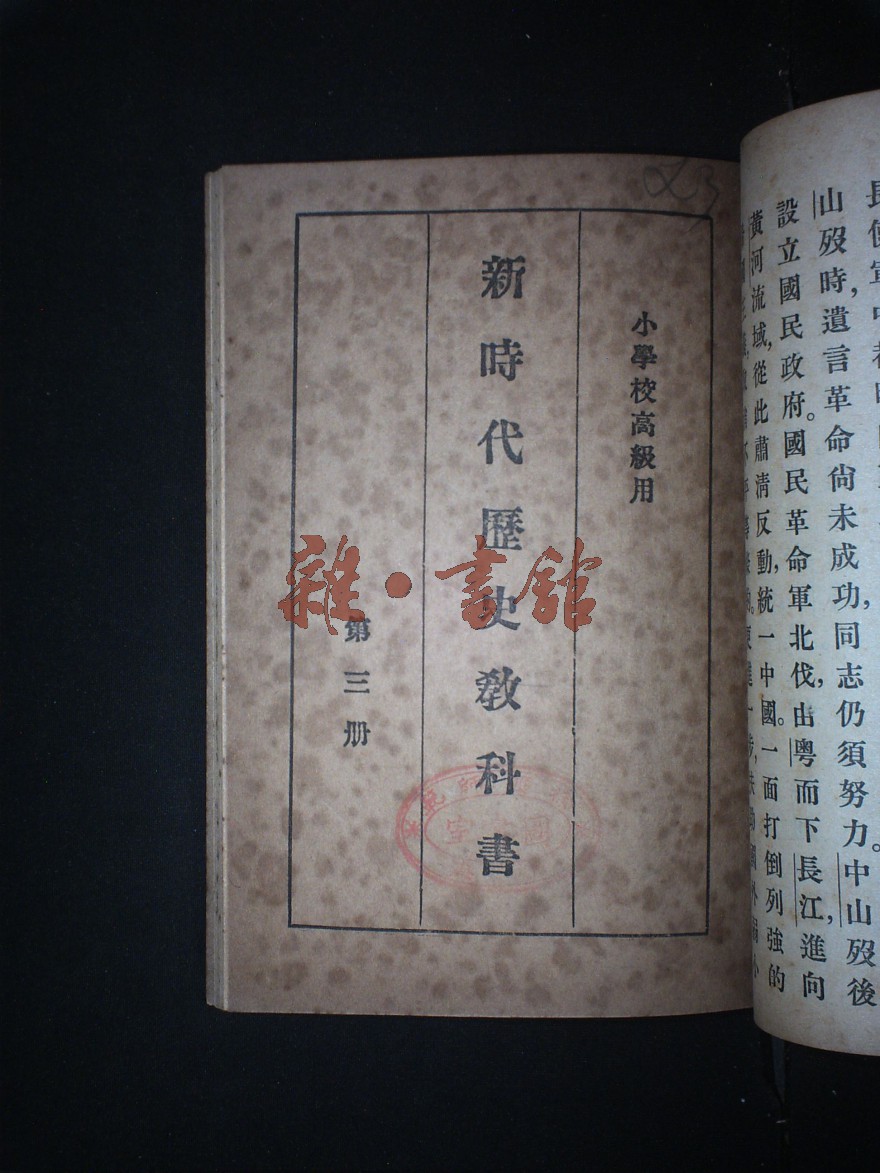 小學校高級用
新時代歷史教科書
第三册
雜·書館
山歿時，遺言革命尙未成功，同志仍須努力。中山歿後
設立國民政府。國民革命軍北伐，由粵而下長江，進向
黃河流域，從此肅清反動，統一中國。一面打倒列強的